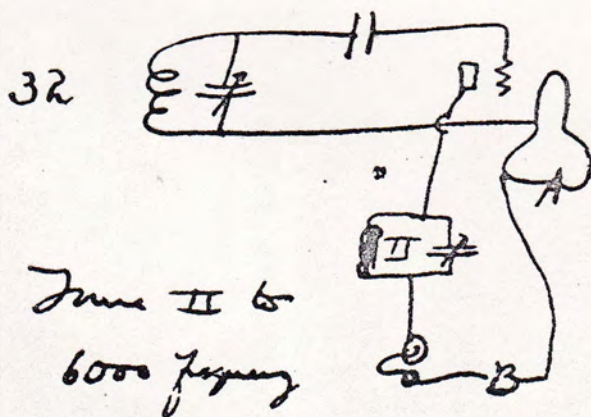 32
II
B
Tune II to
6000 frequency